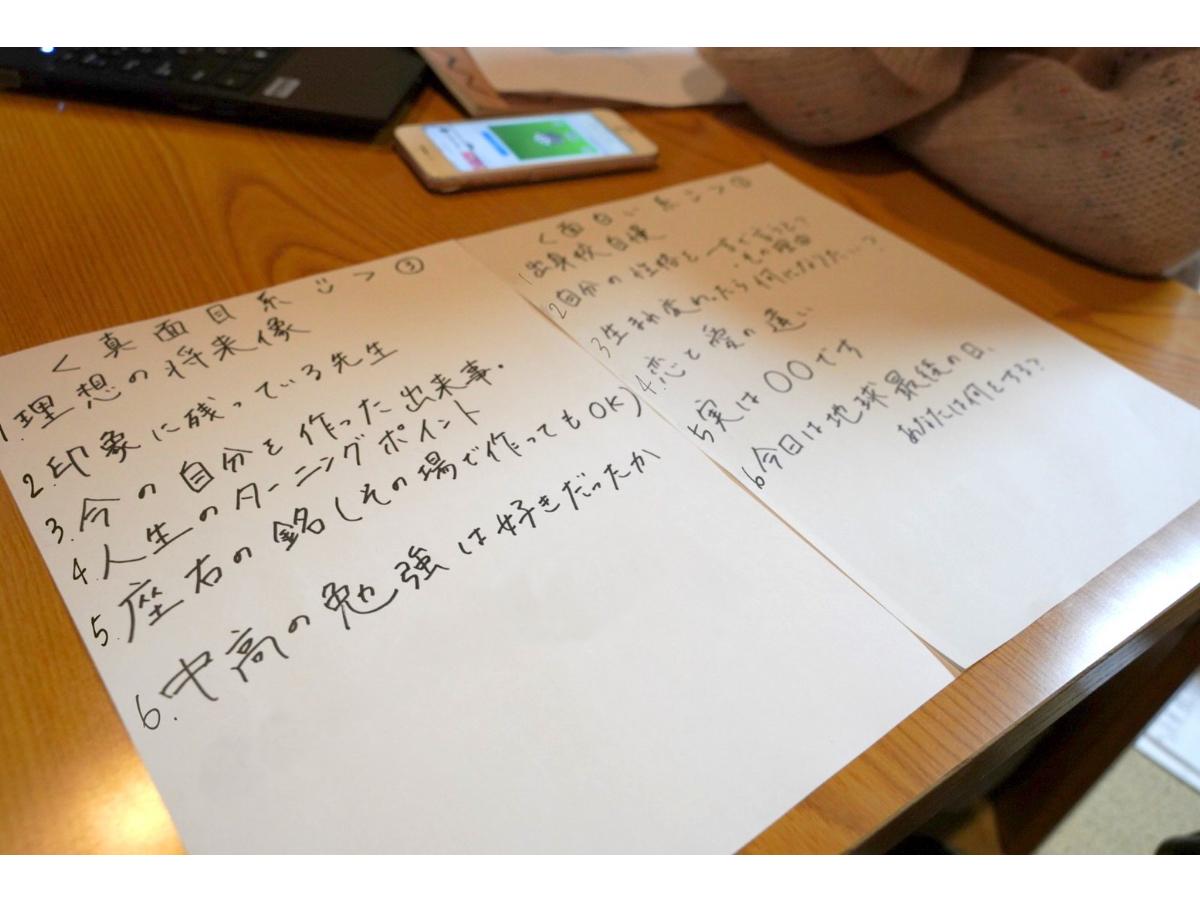 <真面目系 ω > ③
1.理想の将来像
2.印象に残っている先生
3.今の自分を作った出来事.
4.人生のターニングポイント
5.座右の銘(その場で作ってもOK)
6.中高の勉強は好きだったか
<面白い系
1出身校自慢
2自分の性格を一言で言うと?
・その理由
3生まれ変わったら何になりたい?
4.恋と愛の違い
5実は〇〇です
6今日は地球最後の日、
あなたは何をする?